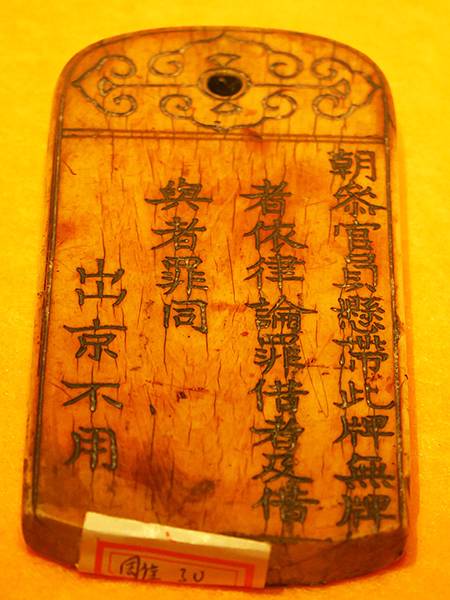 朝叅官員懸帶此牌無牌
者依律論罪借者及借
與者罪同
出京不用
30